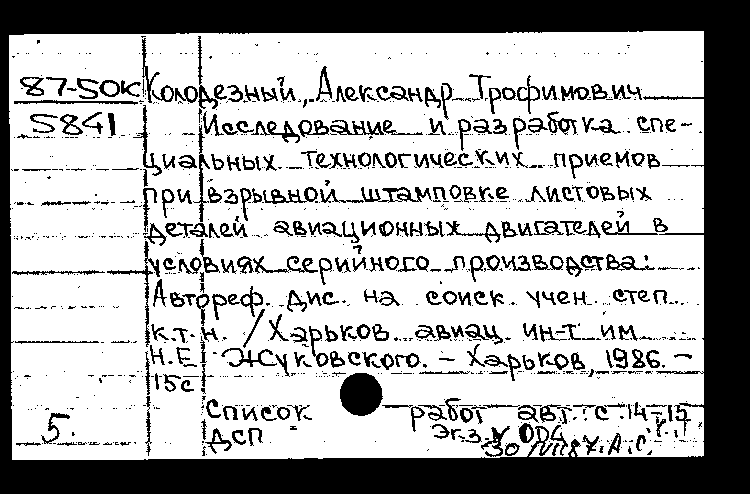 87-50к Колодезный, Александр Трофимович
5841 Исследование и разработка спе-
циальных технологических приемов
при взрывной штамповке листовых
деталей авиационных двигателей в
условиях серийного производства:
Автореф. дис. на соиск. учен. степ.
к.т.н. / Харьков. авиац. ин-т им
Н.Е Жуковского. – Харьков, 1986. –
15с
Список работ авт.: с.14-15
5. ДСП Экз.